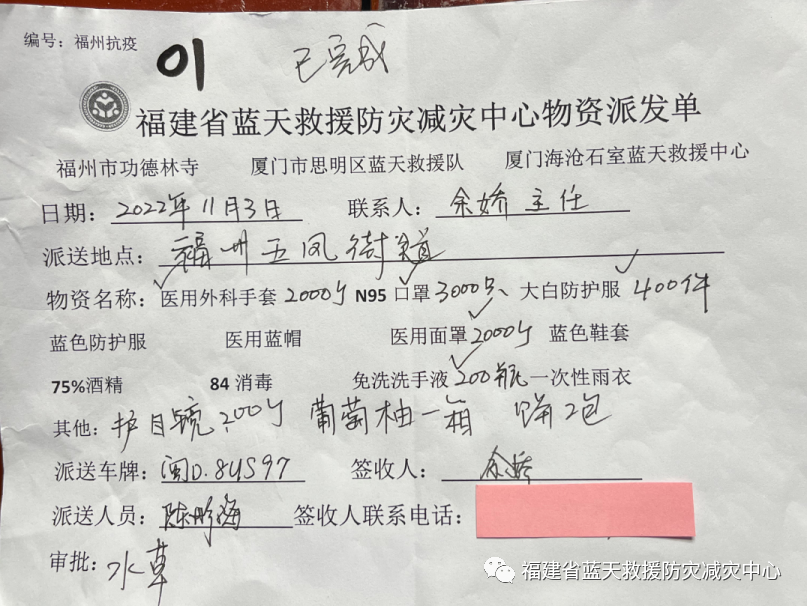 编号：福州抗疫 01 已完成
福建省蓝天救援防灾减灾中心物资派发单
福州市功德林寺 厦门市思明区蓝天救援队 厦门海沧石室蓝天救援中心
日期：2022年11月3日 联系人：余娇 主任
派送地点：福州五凤街道
物资名称：医用外科手套 2000个 N95 口罩 3000只、大白防护服 400件
蓝色防护服 医用蓝帽 医用面罩 2000个 蓝色鞋套
75%酒精 84 消毒 免洗洗手液 200瓶 一次性雨衣
其他：护目镜200个 葡萄柚一箱 饼2包
派送车牌：闽D.84S97 签收人：余娇
派送人员：陈 海 签收人联系电话：
审批：水草
福建省蓝天救援防灾减灾中心